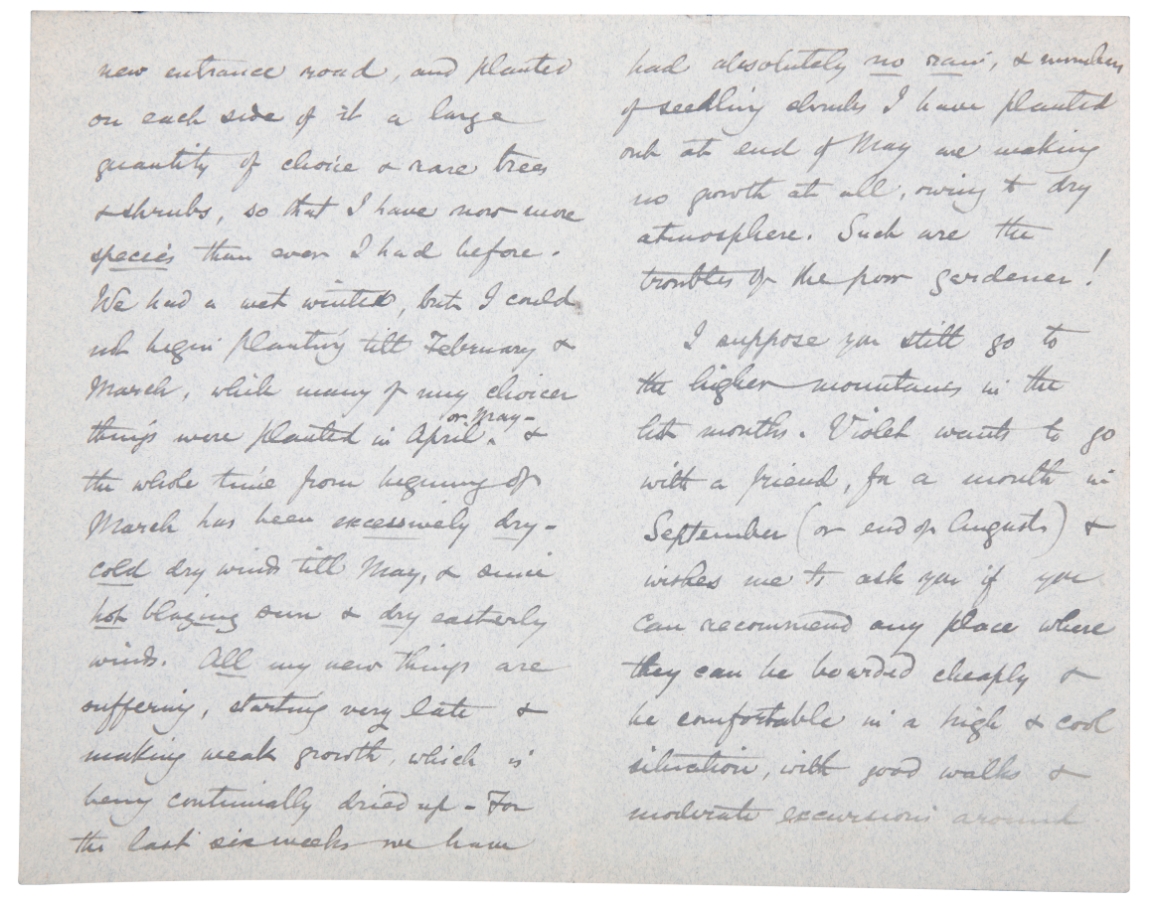 new entrance road, and planted
on each side of it a large
quantity of choice & rare trees
& shrubs, so that I have now more
species than ever I had before.
We had a wet winter, but I could
not begin planting till February &
March, which many of my choicer
things were planted in April. or May- &
the whole time from beginning of
March has been excessively dry-
cold dry winds till May, & since
hot blazing sun & dry easterly
winds. All my new things are
suffering, starting very late &
making weak growth, which is
being continually dried up - For
the last six weeks we have
had absolutely no rain, & numbers
of seedling shrubs I have planted
out at end of May are making
no growth at all, owing to dry
atmosphere. Such are the
troubles of the poor gardener!
I suppose you still go to
the higher mountains in the
hot months. Violet wants to go
with a friend, for a month in
September (or end of August) &
wishes me to ask you if you
can recommend any place where
they can be boarded cheaply &
be comfortable in a high & cool
situation, with good walks &
moderate excursions around